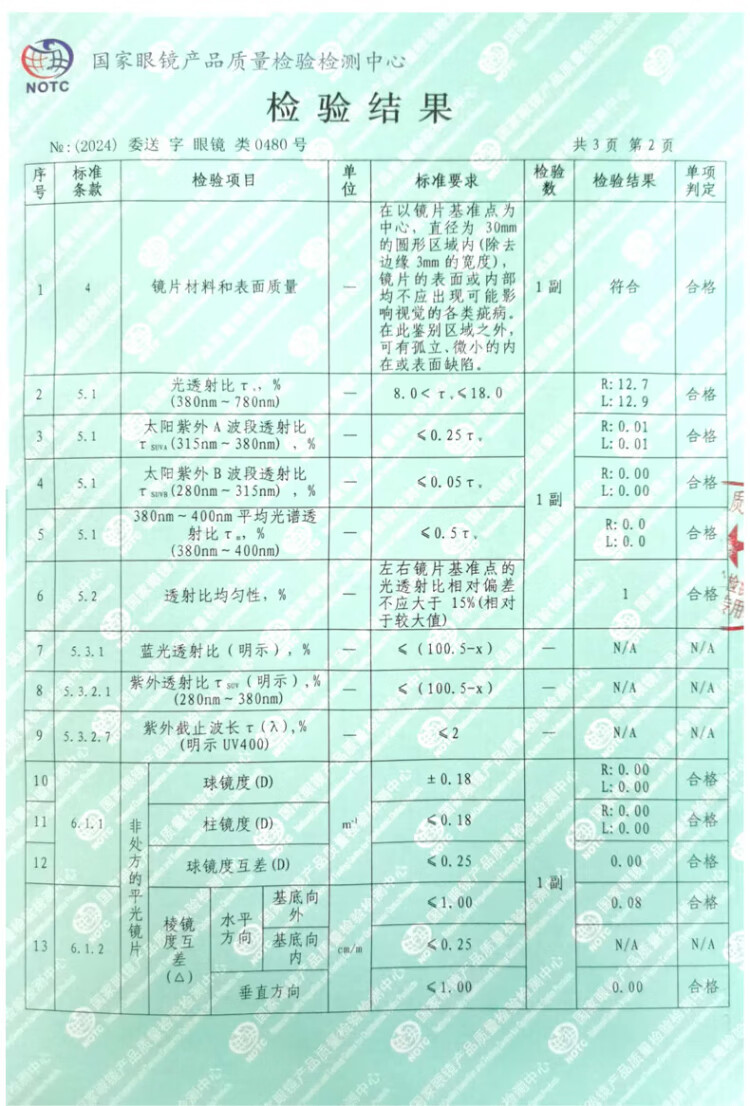 NOTC
国家眼镜产品质量检验检测中心
检验结果
№:(2024) 委送 字 眼镜 类0480号
共3页 第2页
序号 标准条款 检验项目 单位 标准要求 检验数 检验结果 单项判定
1 4 镜片材料和表面质量 — 1副 符合 合格
在以镜片基准点为
中心，直径为 30mm
的圆形区域内(除去
边缘3mm的宽度)，
镜片的表面或内部
均不应出现可能影
响视觉的各类疵病。
在此鉴别区域之外，
可有孤立、微小的内
在或表面缺陷。
2 5.1 光透射比τv，% — 8.0＜τv≤18.0 R:12.7 合格
(380nm～780nm) L:12.9
3 5.1 太阳紫外A波段透射比 — ≤0.25τv R:0.01 合格
τSUVA(315nm～380nm)，% L:0.01
4 5.1 太阳紫外B波段透射比 — ≤0.05τv R:0.00 合格
τSUVB(280nm～315nm)，% L:0.00
1副
5 5.1 380nm～400nm平均光谱透 — ≤0.5τv R:0.0 合格
射比τ，% L:0.0
(380nm～400nm)
6 5.2 透射比均匀性，% — 1 合格
左右镜片基准点的
光透射比相对偏差
不应大于 15%(相对
于较大值)
7 5.3.1 蓝光透射比（明示），% — ≤（100.5-x） — N/A N/A
8 5.3.2.1 紫外透射比τSUV（明示），% — ≤（100.5-x） — N/A N/A
(280nm～380nm)
9 5.3.2.7 紫外截止波长τ(λ)，% — ≤2 — N/A N/A
(明示UV400)
非处方的平光镜片
10 球镜度(D) ±0.18 R:0.00 合格
L:0.00
11 6.1.1 柱镜度(D) m-1 ≤0.18 R:0.00 合格
L:0.00
12 球镜度互差(D) ≤0.25 0.00 合格
1副
13 6.1.2 棱镜度互差(△) 水平方向 基底向外 cm/m ≤1.00 0.08 合格
基底向内 ≤0.25 N/A N/A
垂直方向 ≤1.00 0.00 合格
质
检
用